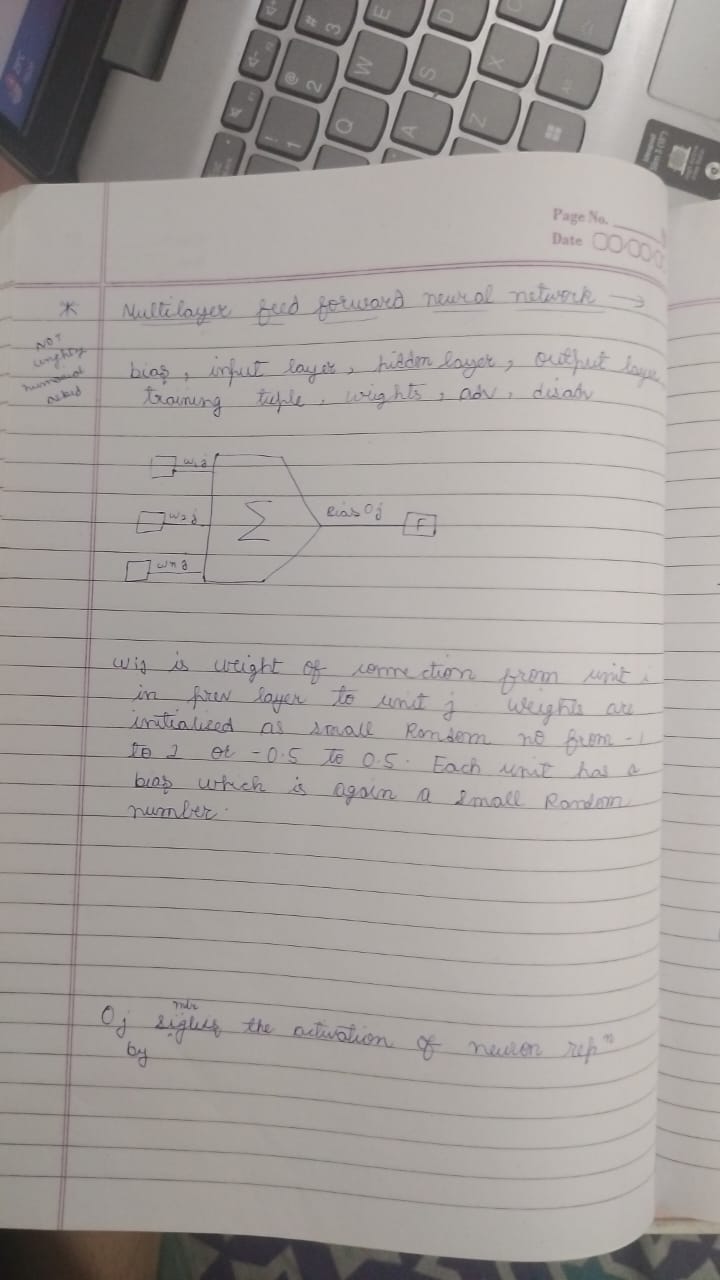 # 3 E D
@ 2 W S X
! 1 Q A Z
Page No.
Date
* Multilayer feed forward neural network →
NOT
numerical
bias, input layer, hidden layer, output laye
training tuple, weights, adv, disadv
w1j
w2j
Σ
Bias Oj
F
wnj
wij is weight of connection from unit i
in prev layer to unit j. Weights are
initialised as small Random no from -1
to 1 or -0.5 to 0.5. Each unit has a
bias which is again a small Random
number.
Oj the activation of neuron repⁿ
by